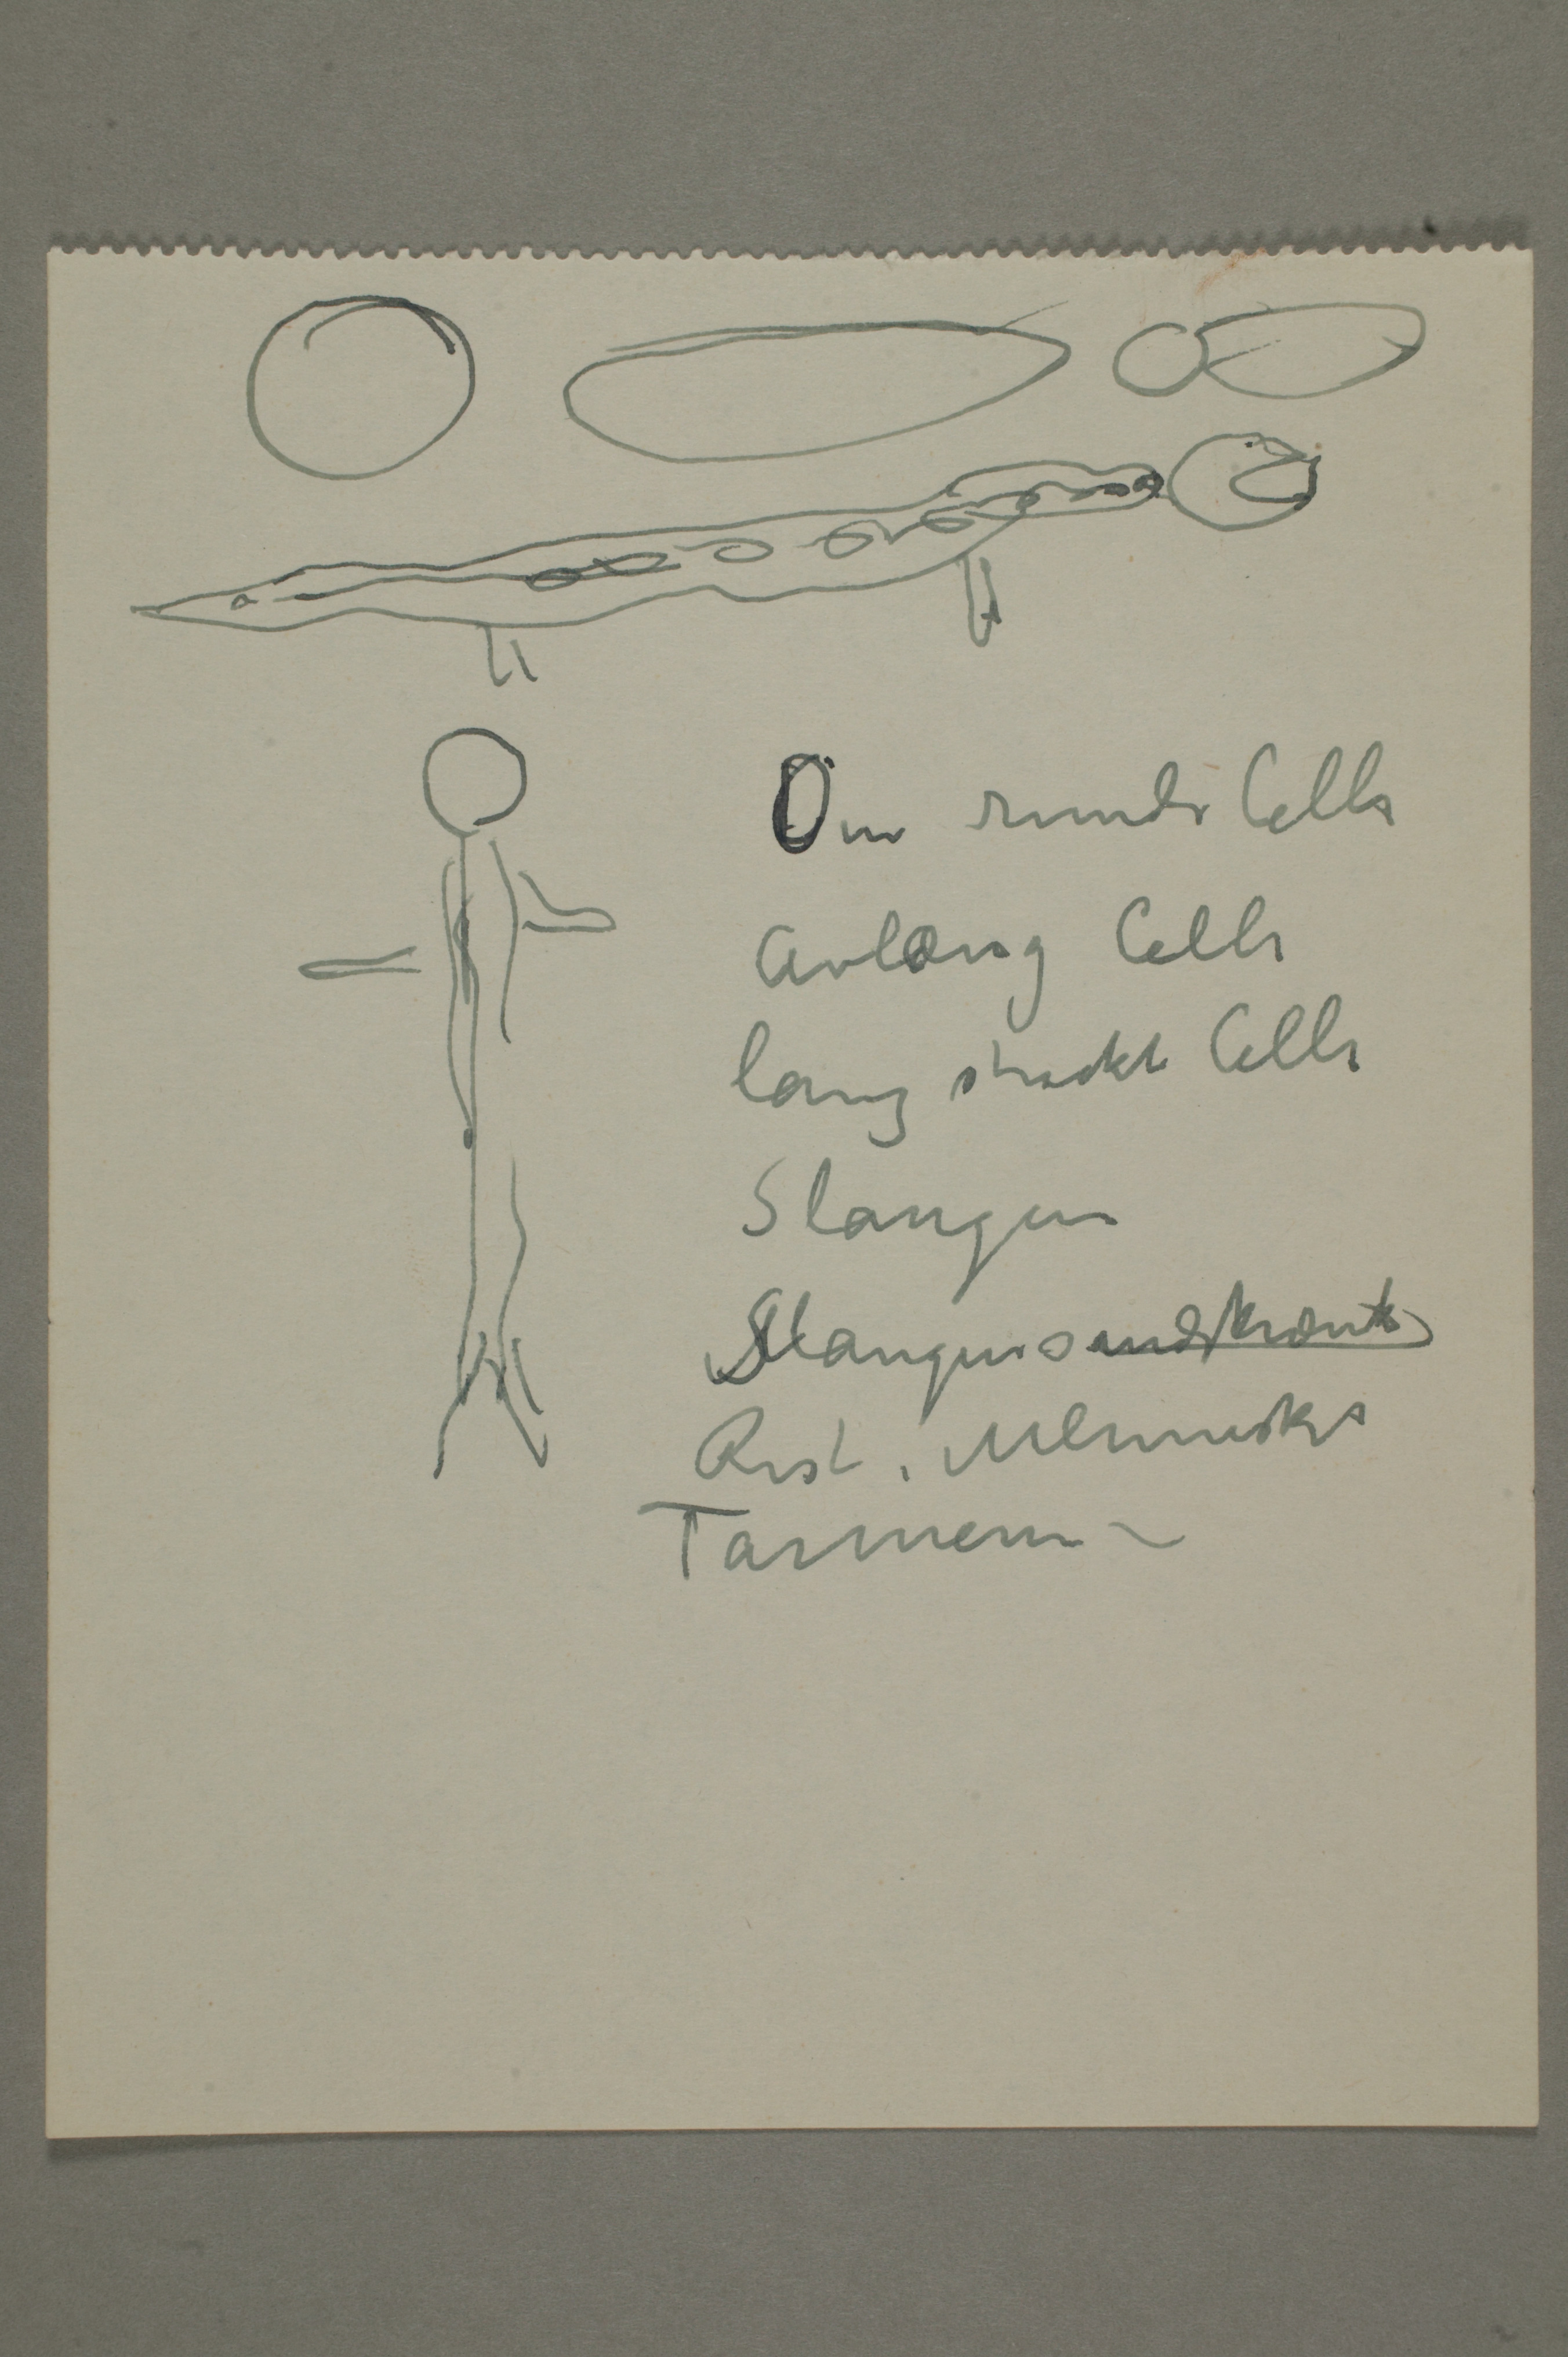 Den runde Celle
Avlang Celle
lang strakt Celle
Slangen
Slangens indskrænk
Rest i Mennesket
Tarmene